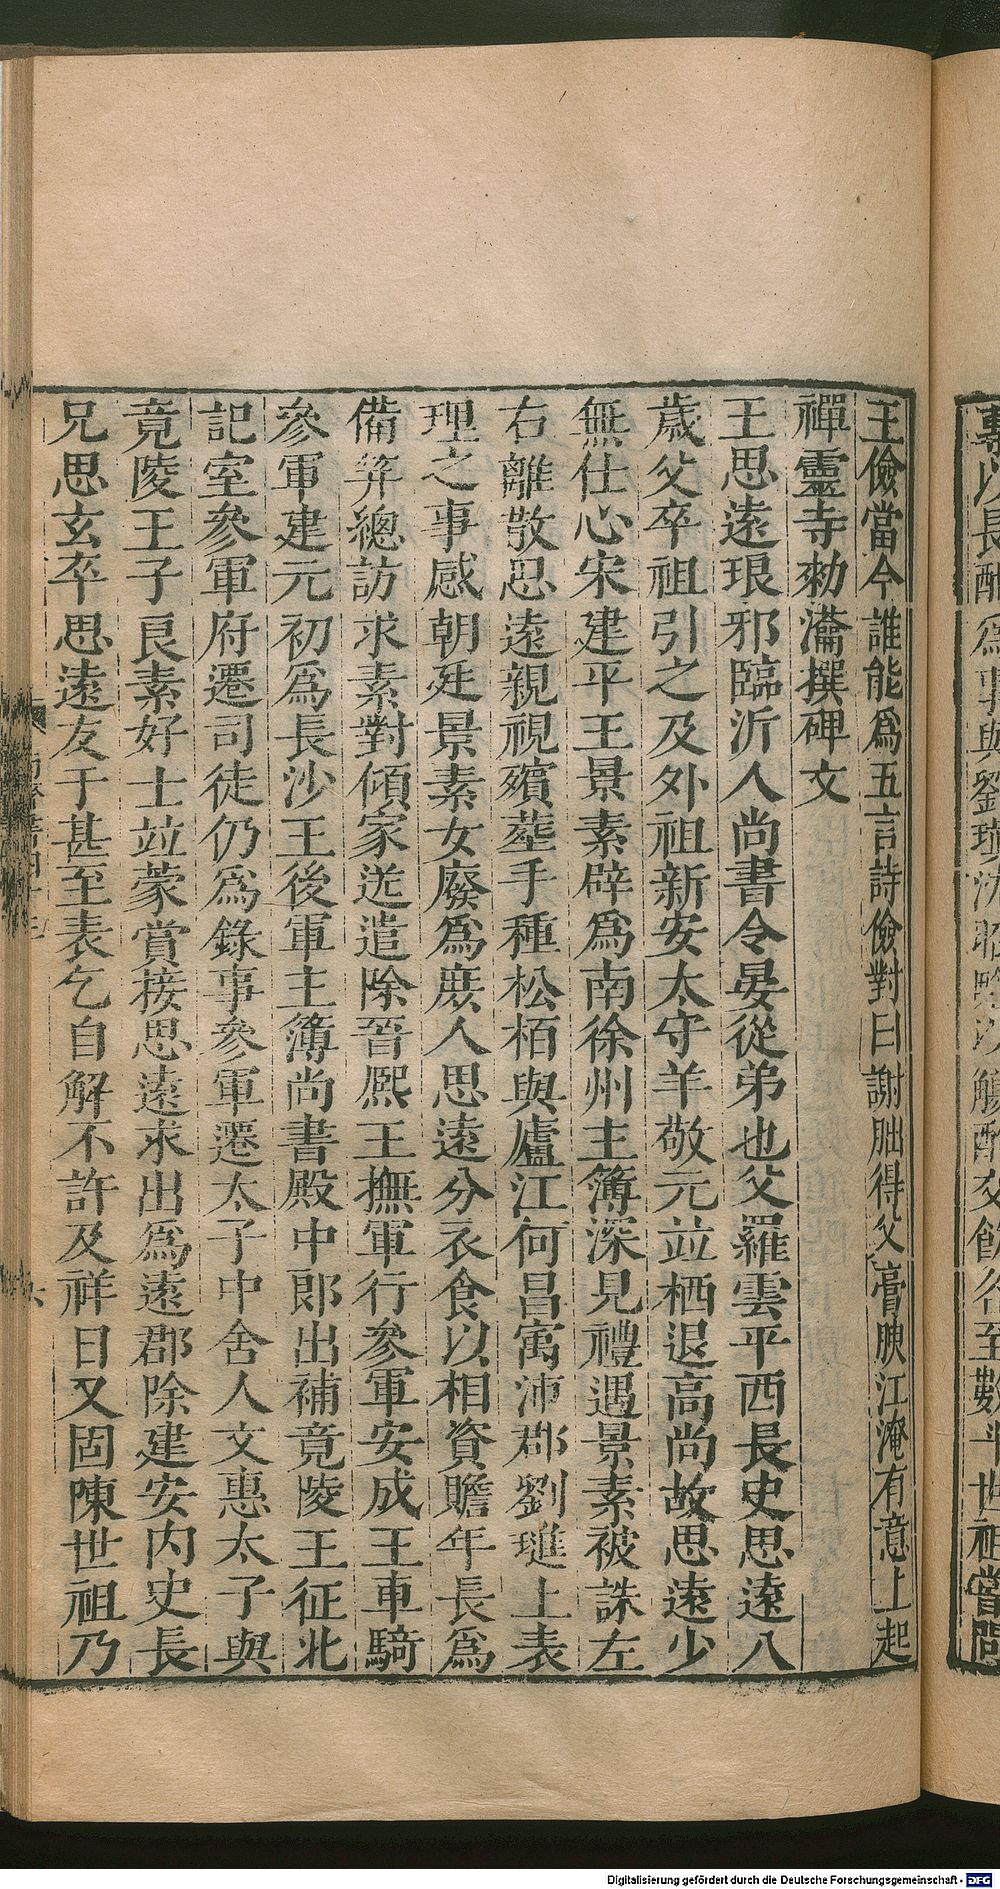 王儉當今誰能爲五言詩儉對曰謝朏得父膏腴江淹有意上起
禪靈寺勑瀹撰碑文
王思遠琅邪臨沂人尚書令晏從弟也父羅雲平西長史思遠八
歲父卒祖引之及外祖新安太守羊敬元竝栖退高尚故思遠少
無仕心宋建平王景素辟爲南徐州主簿深見禮遇景素被誅左
右離散思遠親視殯葬手種松栢與廬江何昌㝢沛郡劉璡上表
理之事感朝廷景素女廢爲庶人思遠分衣食以相資贍年長爲
備笄總訪求素對傾家送遣除晉熙王撫軍行參軍安成王車騎
參軍建元初爲長沙王後軍主簿尚書殿中郎出補竟陵王征北
記室參軍府遷司徒仍爲錄事參軍遷太子中舍人文惠太子與
竟陵王子良素好士竝蒙賞接思遠求出爲遠郡除建安內史長
兄思玄卒思遠友于甚至表乞自解不許及祥日又固陳世祖乃
Digitalisierung gefördert durch die Deutsche Forschungsgemeinschaft - DFG